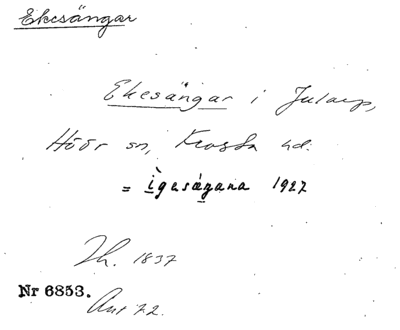 Ekesängar
Ekesängar i Jularp,
Höör sn, Frosta hd.
= ìgesáŋana 1927
Th. 1837
Nr 6853.
Ant 72.